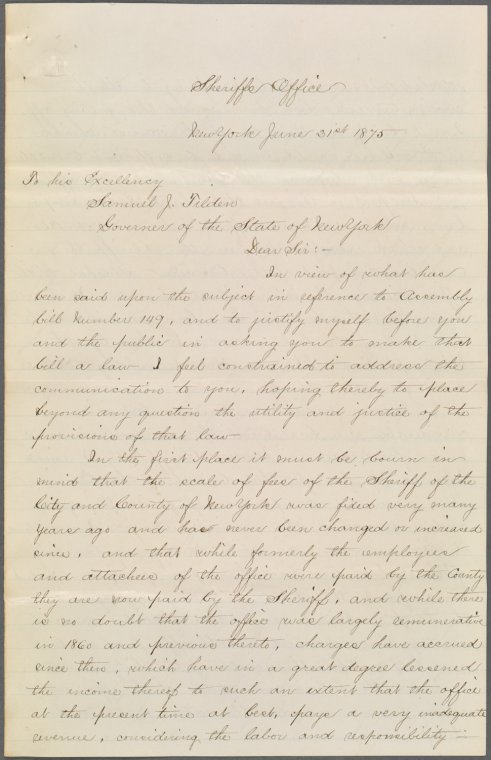 Sheriffs Office
New York June 21st 1875
To his Excellency
Samuel J. Tilden
Governer of the State of New York
Dear Sir:-
In view of what has
been said upon the subject in reference to Assembly
bill Number 149, and to justify myself before you
and the public in asking you to make that
bill a law I feel constrained to address the
communication to you, hoping thereby to place
beyond any question the utility and justice of the
provisions of that law
In the first place it must be bourn in
mind that the scale of fees of the Sheriff of the
City and County of New York was fixed very many
years ago and has never been changed or increased
since, and that while formerly the employees
and attachees of the office were paid by the County
they are now paid by the Sheriff, and while there
is no doubt that the office was largely remunerative
in 1860 and previous thereto, charges have accrued
since then, which have in a great degree lessened
the income thereof to such an extent that the office
at the present time at best, pays a very inadequate
revenue, considering the labor and responsibility -